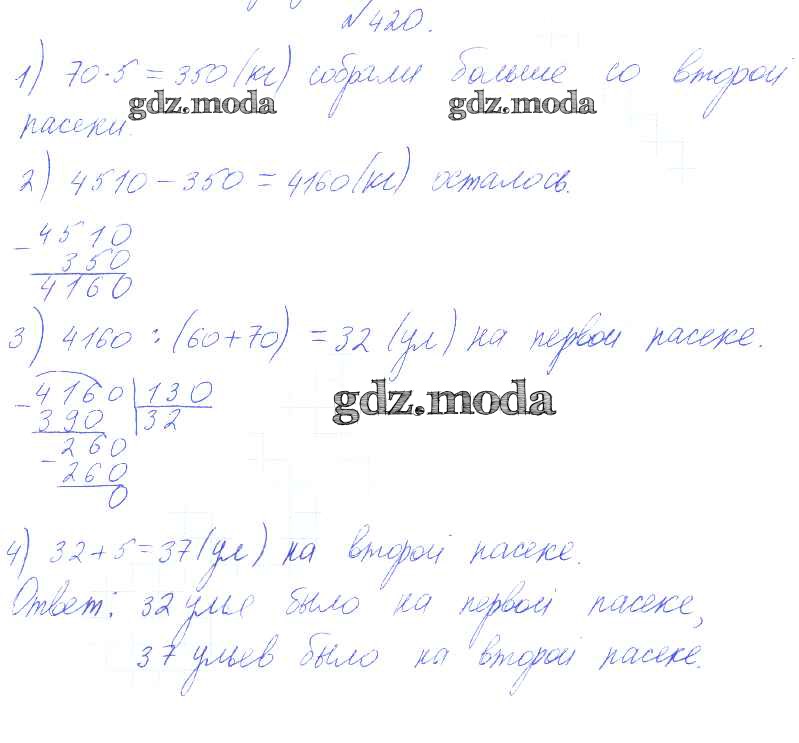 №420.
1) 70·5=350(кг) собрали больше со второй
gdz.moda gdz.moda
пасеки.
2) 4510-350=4160(кг) осталось.
- 4510
350
4160
3) 4160:(60+70)=32 (ул) на первой пасеке.
- 4160 | 130
390 | 32
gdz.moda
- 260
260
0
4) 32+5=37(ул) на второй пасеке.
Ответ: 32 улье было на первой пасеке,
37 ульев было на второй пасеке.